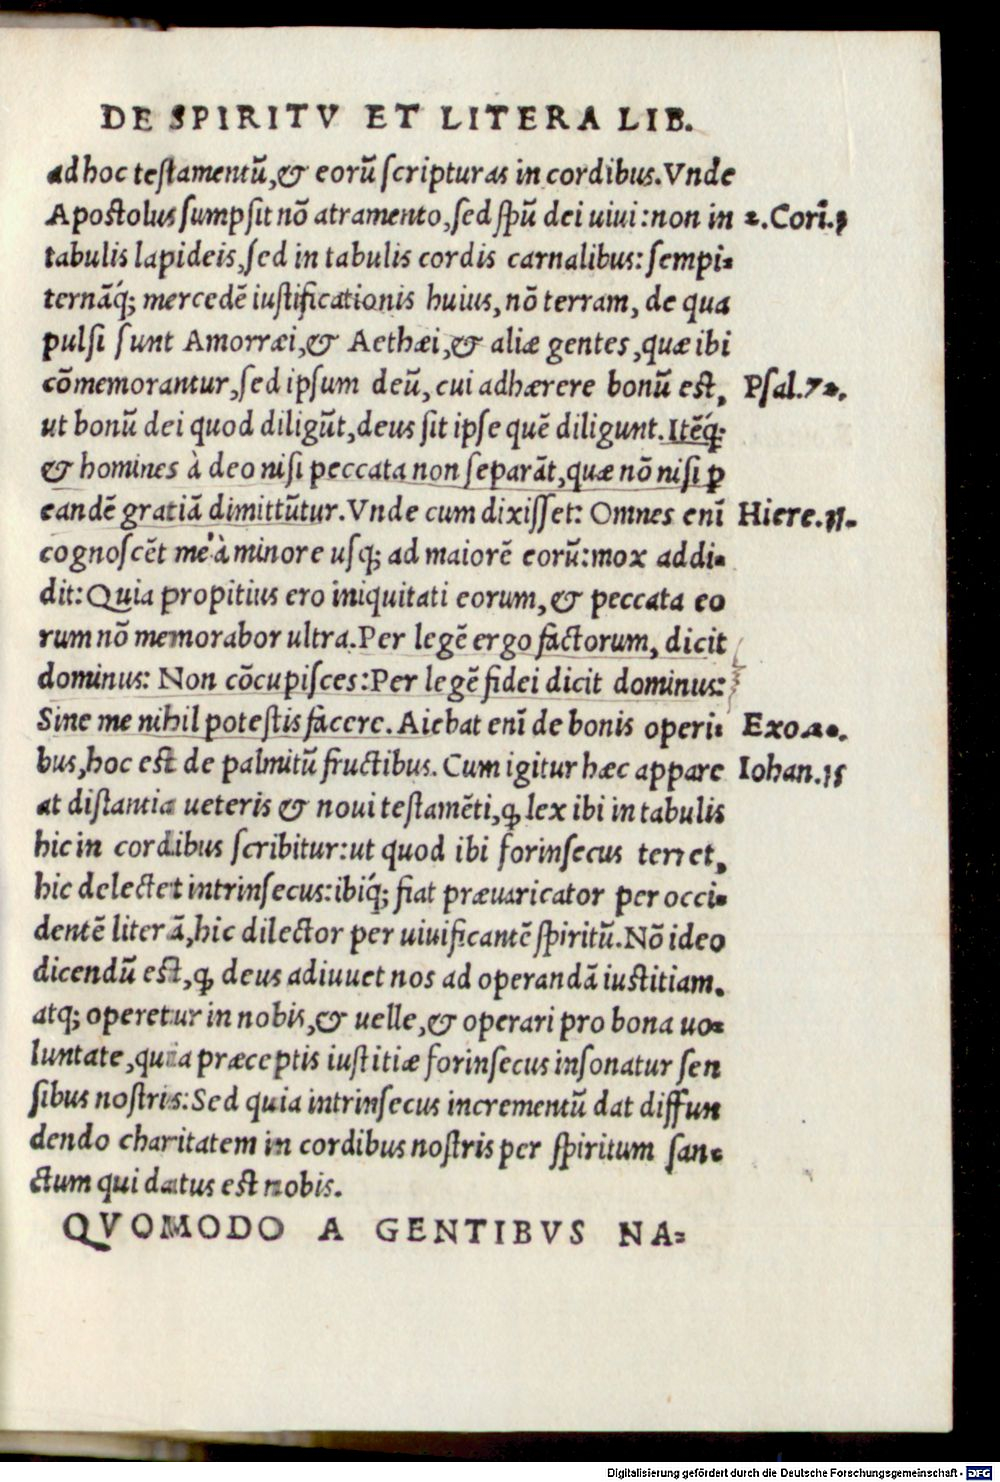 DE SPIRITV ET LITERA LIB.
ad hoc testamentū,& eorū scripturas in cordibus.Vnde
Apostolus sumpsit nō atramento,sed spū dei uiui:non in
2.Corī.3
tabulis lapideis,sed in tabulis cordis carnalibus:sempi=
ternāq́; mercedē iustificationis huius,nō terram, de qua
pulsi sunt Amorræi,& Aethæi,& aliæ gentes,quæ ibi
cōmemorantur,sed ipsum deū,cui adhærere bonū est,
Psal.72.
ut bonū dei quod diligūt,deus sit ipse quē diligunt.Itēq́;
& homines à deo nisi peccata non separāt,quæ nō nisi ꝑ
eandē gratiā dimittūtur.Vnde cum dixisset: Omnes enī
Hiere.31.
cognoscēt me à minore usq; ad maiorē eorū:mox addi=
dit:Quia propitius ero iniquitati eorum,& peccata eo
rum nō memorabor ultra.Per legē ergo factorum, dicit
dominus: Non cōcupisces:Per legē fidei dicit dominus:
Sine me nihil potestis facere.Aiebat enī de bonis operi=
Exo.20.
bus,hoc est de palmitū fructibus. Cum igitur hæc appare
Iohan.15
at distantia ueteris & noui testamēti,ꝙ lex ibi in tabulis
hic in cordibus scribitur:ut quod ibi forinsecus terret,
hic delectet intrinsecus:ibiq́; fiat præuaricator per occi=
dentē literā,hic dilector per uiuificantē spiritū.Nō ideo
dicendū est,ꝙ deus adiuuet nos ad operandā iustitiam.
atq; operetur in nobis,& uelle,& operari pro bona uo=
luntate,quia præceptis iustitiæ forinsecus insonatur sen
sibus nostris:Sed quia intrinsecus incrementū dat diffun
dendo charitatem in cordibus nostris per spiritum san=
ctum qui datus est nobis.
QVOMODO A GENTIBVS NA=
Digitalisierung gefördert durch die Deutsche Forschungsgemeinschaft - DFG